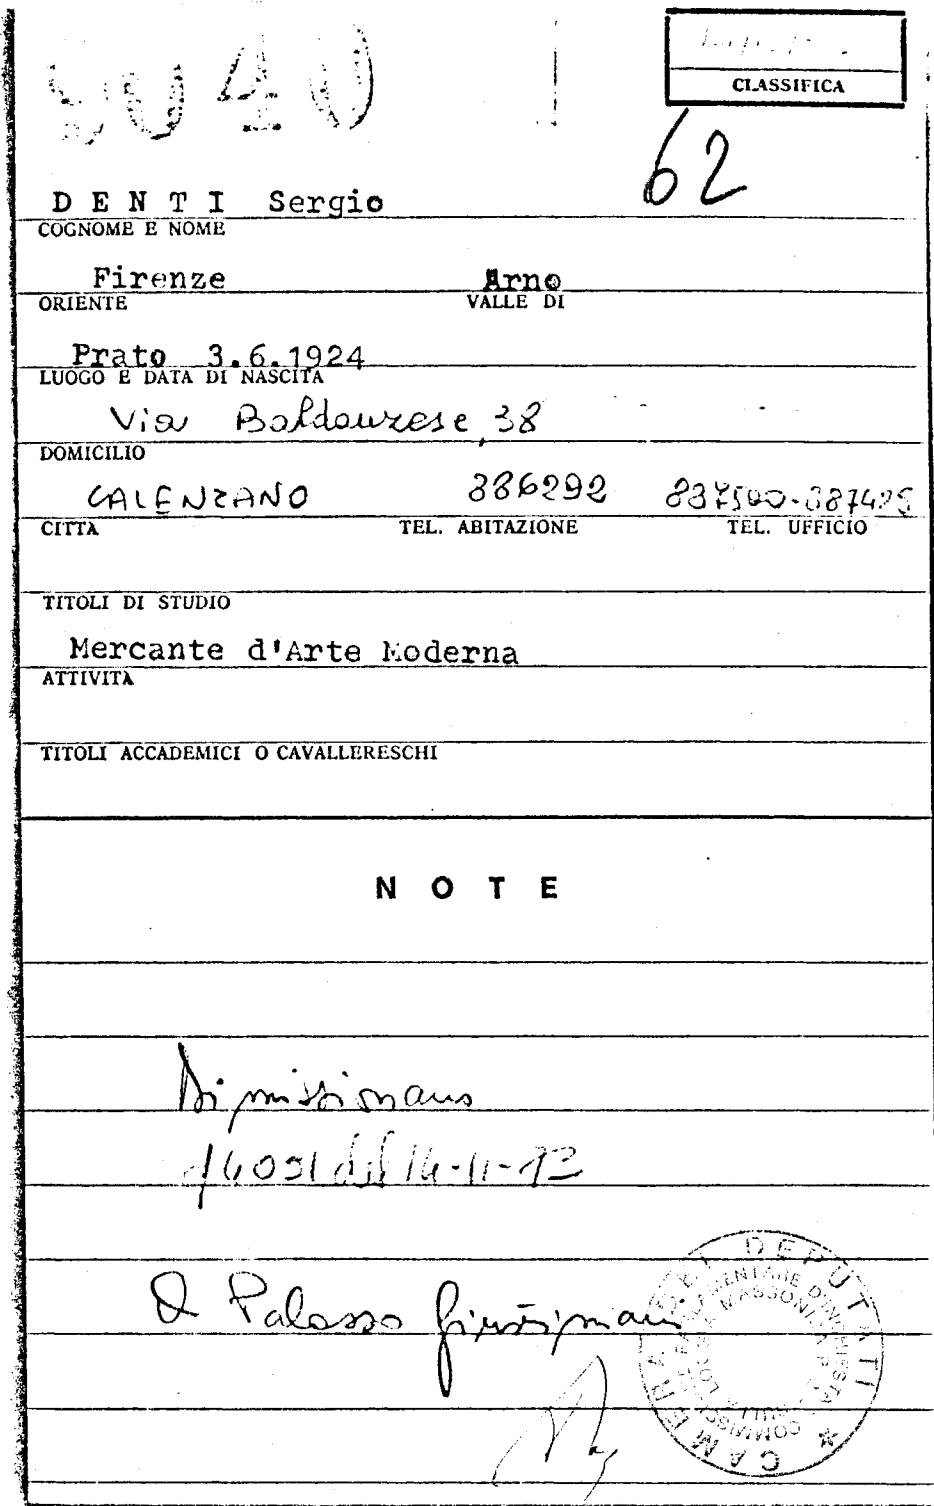 9040
CLASSIFICA
62
DENTI Sergio
COGNOME E NOME
Firenze Arno
ORIENTE VALLE DI
Prato 3.6.1924
LUOGO E DATA DI NASCITA
Via Baldanzese, 38
DOMICILIO
CALENZANO 886292
CITTÀ TEL. ABITAZIONE TEL. UFFICIO
TITOLI DI STUDIO
Mercante d'Arte Moderna
ATTIVITÀ
TITOLI ACCADEMICI O CAVALLERESCHI
NOTE
Dimissionario
del 14-11-73
Palazzo Giustiniani
CAMERA DEI DEPUTATI
COMMISSIONE PARLAMENTARE D'INCHIESTA
SULLA LOGGIA MASSONICA P2